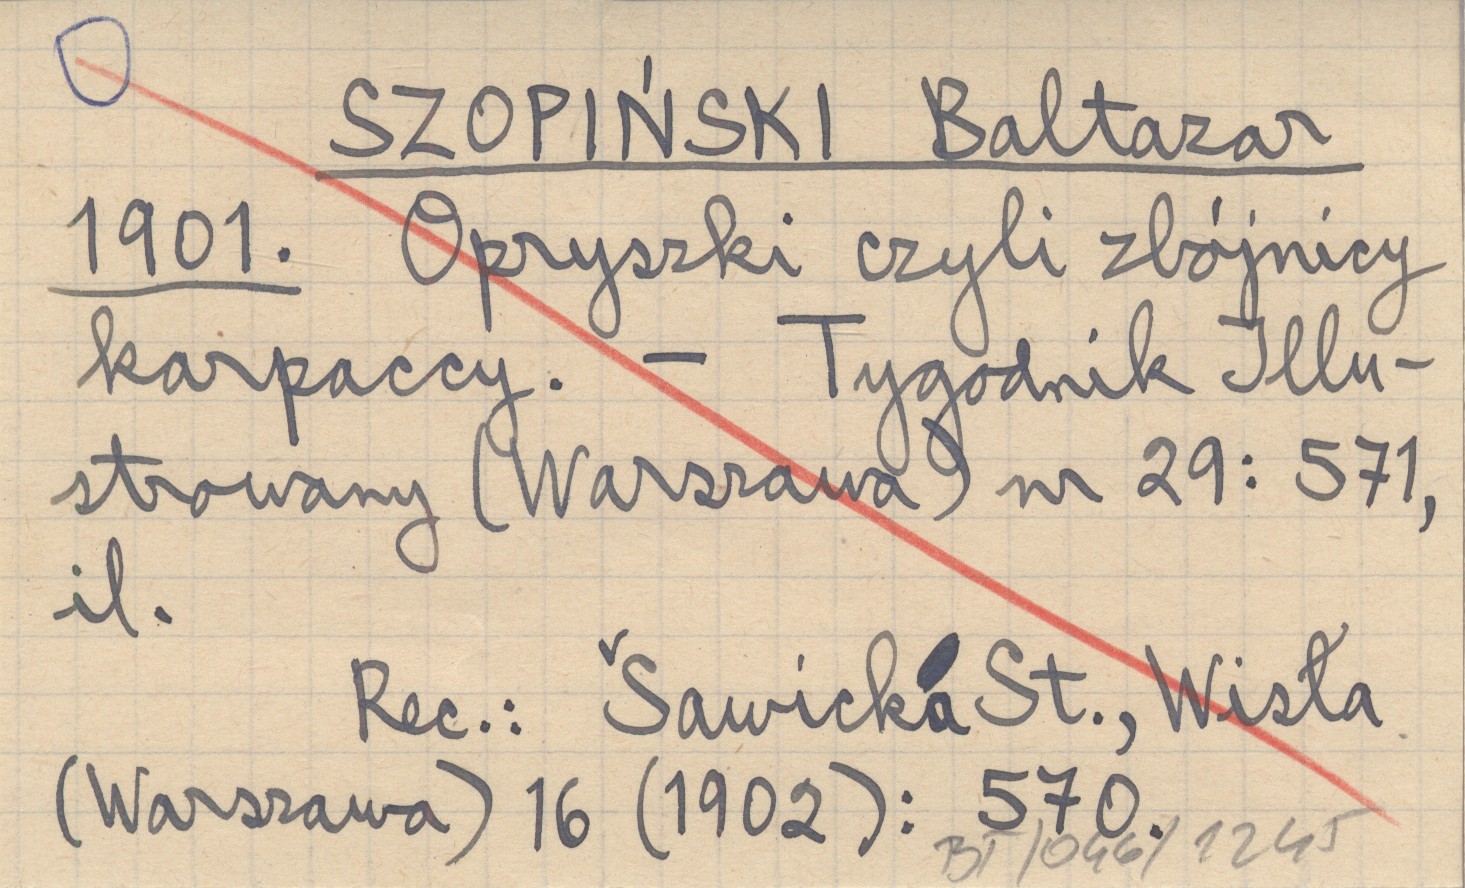 SZOPIŃSKI Baltazar
1901. Opryszki czyli zbójnicy
karpaccy. – Tygodnik Illu-
strowany (Warszawa) nr 29: 571,
il.
Rec.: Šawicka St., Wisła
(Warszawa) 16 (1902): 570.
BT/046/1245